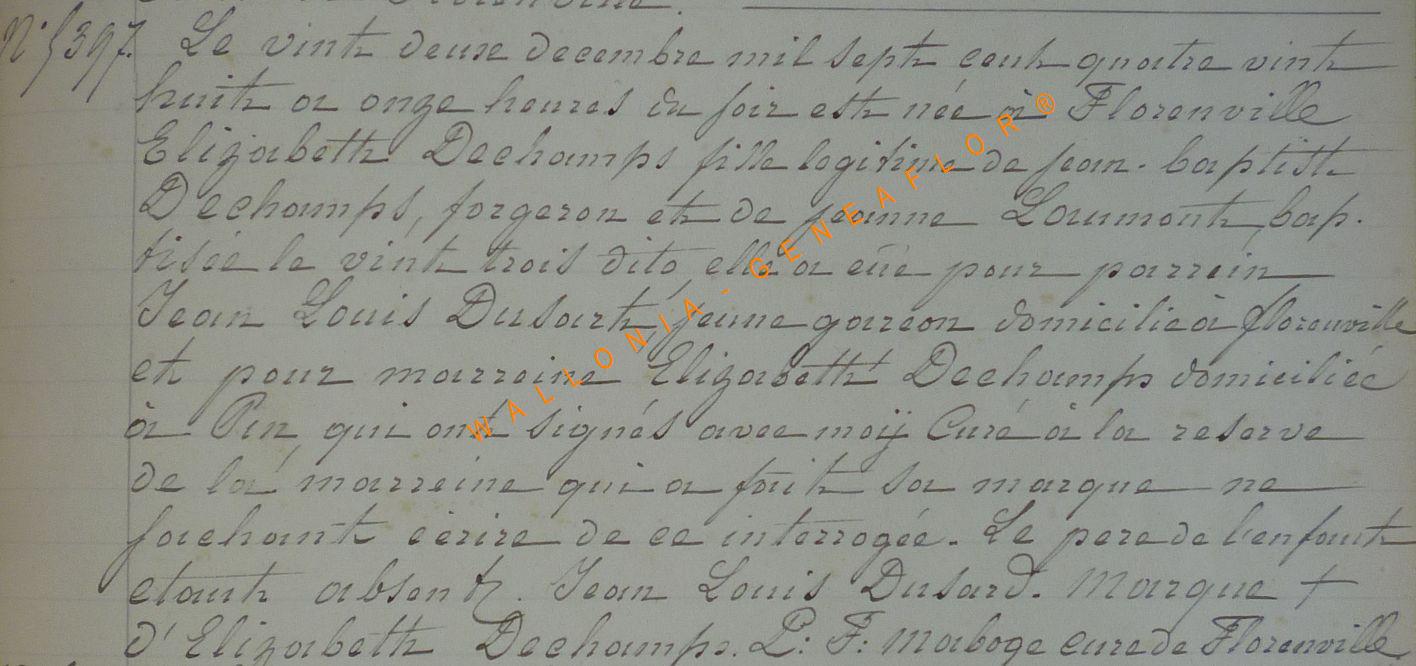 N° 5397. Le vint deux decembre mil sept cent quatre vint
huit a onze heures du soir est née à Florenville
Elizabeth Dechamps fille legitime de jean-baptiste
Dechamps, forgeron et de jeanne Laumont, bap-
tisée le vint trois dito, elle a eüe pour parrein
Jean Louis Dusart, jeune garcon domicilié à florenville
et pour marreine Elizabeth Dechamps domiciliée
à Pin, qui ont signés avec moÿ Curé à la reserve
de la marreine qui a fait sa marque ne
sachant ecrire de ce interrogée. Le pere de l'enfant
etant absent. Jean Louis Dusard. Marque +
d'Elizabeth Dechamps. P: F: Maboge cure de Florenville
WALLONIA - GENEAFLOR®